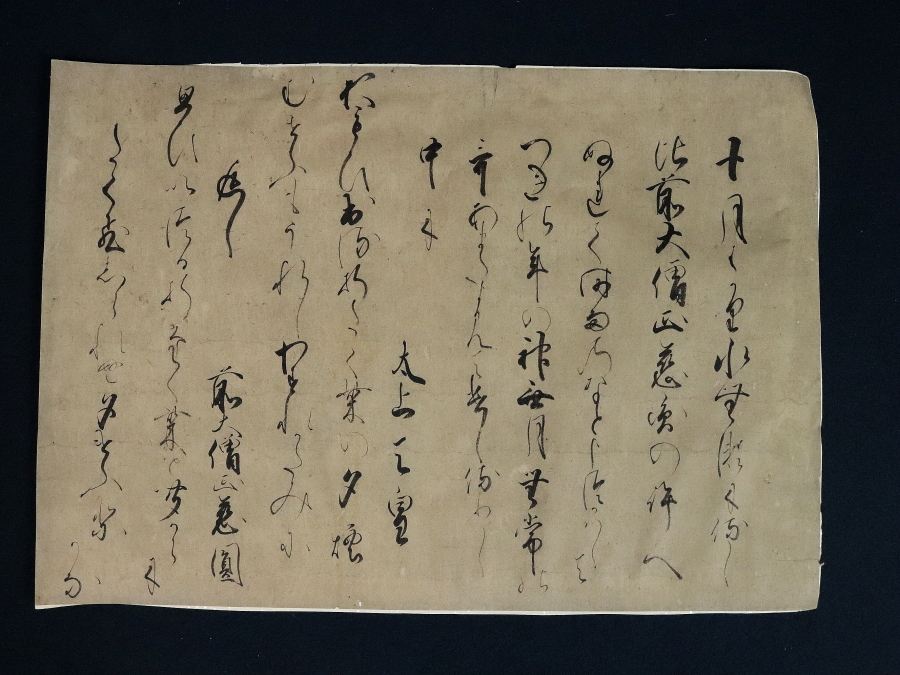 十月はかり水無瀬に侍し
比前大僧正慈圓の許へ
ぬれて時雨のなと申つかはして
つきの年の神無月無常の
哥あまたよみて遣し侍りし
中に
太上天皇
おもひ出る折たく柴の夕煙
むせふもうれしわすれかたみに
返し
前大僧正慈圓
思ひいつる折たく柴と聞からに
たくひしられぬ夕けふりかな